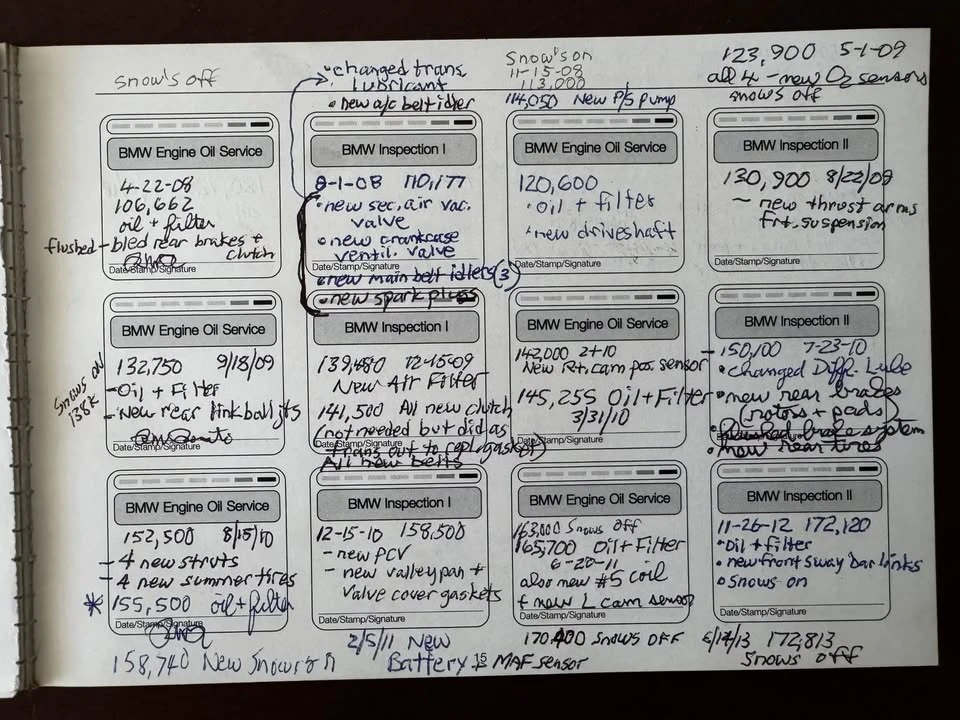 snow's off
BMW Engine Oil Service
4-22-08
106,662
oil + filter
flushed - bled rear brakes +
clutch
Date/Stamp/Signature
• changed trans.
lubricant
• new a/c belt idler
BMW Inspection I
8-1-08 110,177
• new sec. air vac.
valve
• new crankcase
ventil. valve
Date/Stamp/Signature
• new main belt idlers (3)
• new spark plugs
Snow's on
11-15-08
113,000
114,050 New P/S pump
BMW Engine Oil Service
120,600
• oil + filter
• new driveshaft
Date/Stamp/Signature
123,900 5-1-09
all 4 - new O2 sensors
snows off
BMW Inspection II
130,900 8/22/09
- new thrust arms
frt. suspension
Date/Stamp/Signature
BMW Engine Oil Service
132,750 9/18/09
- Oil + Filter
- New rear link ball jts
Snows on
138K
Date/Stamp/Signature
BMW Inspection I
139,480 12-15-09
New Air Filter
141,500 All new clutch
(not needed but did as
Date/Stamp/Signature
trans out to repl. gasket)
All new belts
BMW Engine Oil Service
142,000 2-10
New Rt. cam pos. sensor
145,255 Oil + Filter
3/31/10
Date/Stamp/Signature
BMW Inspection II
- 150,100 7-23-10
• changed Diff. Lube
• new rear brakes
(rotors + pads)
• flushed brake system
Date/Stamp/Signature
• new rear tires
BMW Engine Oil Service
152,500 8/15/10
- 4 new struts
- 4 new summer tires
* 155,500 oil + filter
Date/Stamp/Signature
158,740 New Snows on
BMW Inspection I
12-15-10 158,500
- new PCV
- new valley pan +
valve cover gaskets
Date/Stamp/Signature
2/5/11 New
Battery
BMW Engine Oil Service
163,000 Snows off
165,700 Oil + Filter
6-20-11
also new #5 coil
+ new L cam sensor
Date/Stamp/Signature
170,400 snows off
MAF sensor
BMW Inspection II
11-26-12 172,120
• oil + filter
• new front sway bar links
• snows on
Date/Stamp/Signature
172,813
snows off